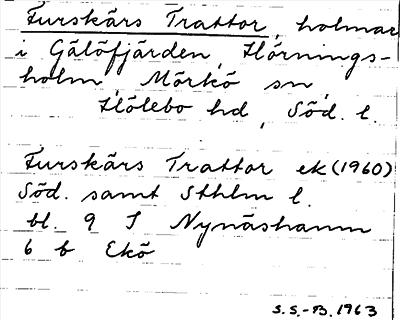 Furskärs Trattor, holmar
i Gälöfjärden, Hörnings-
holm, Mörkö sn,
Hölebo hd, Söd. l.
Furskärs Trattor ek (1960)
Söd. samt Sthlm l.
bl. 9 I Nynäshamn
6 b Ekö
S.S.-B. 1963